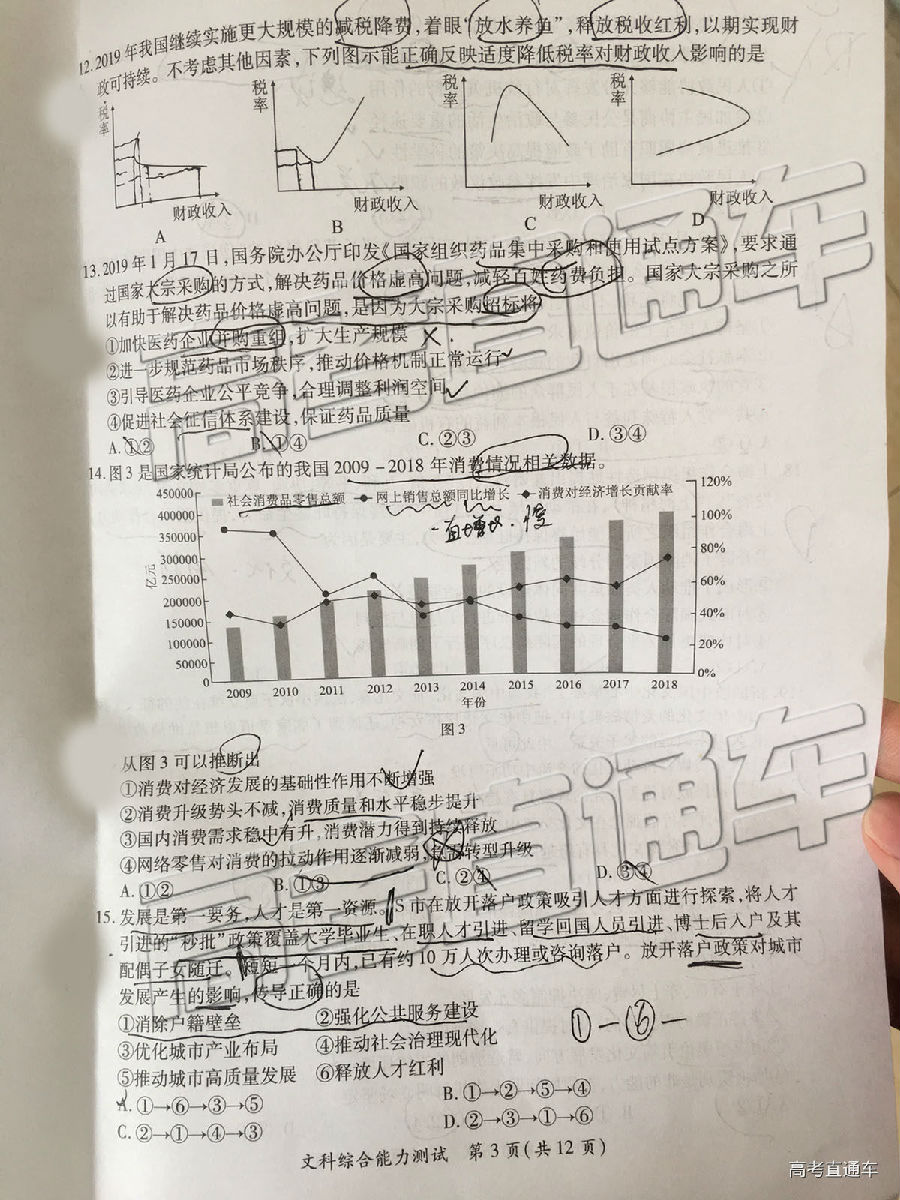 12.2019年我国继续实施更大规模的减税降费,着眼“放水养鱼”,释放税收红利,以期实现财
政可持续。不考虑其他因素,下列图示能正确反映适度降低税率对财政收入影响的是
税率 税率 税率 税率
财政收入 财政收入 财政收入 财政收入
A B C D
13.2019年1月17日,国务院办公厅印发《国家组织药品集中采购和使用试点方案》,要求通
过国家大宗采购的方式,解决药品价格虚高问题,减轻百姓药费负担。国家大宗采购之所
以有助于解决药品价格虚高问题,是因为大宗采购招标将
①加快医药企业并购重组,扩大生产规模
②进一步规范药品市场秩序,推动价格机制正常运行
③引导医药企业公平竞争,合理调整利润空间
④促进社会征信体系建设,保证药品质量
A.①② B.①④ C.②③ D.③④
14.图3是国家统计局公布的我国2009-2018年消费情况相关数据。
社会消费品零售总额 网上销售总额同比增长 消费对经济增长贡献率
一直增长
亿元
450000
400000
350000
300000
250000
200000
150000
100000
50000
0
120%
100%
80%
60%
40%
20%
0%
2009 2010 2011 2012 2013 2014 2015 2016 2017 2018
年份
图3
从图3可以推断出
①消费对经济发展的基础性作用不断增强
②消费升级势头不减,消费质量和水平稳步提升
③国内消费需求稳中有升,消费潜力得到持续释放
④网络零售对消费的拉动作用逐渐减弱,急需转型升级
A.①② B.①③ C.②④ D.③④
15.发展是第一要务,人才是第一资源。S市在放开落户政策吸引人才方面进行探索,将人才
引进的“秒批”政策覆盖大学毕业生、在职人才引进、留学回国人员引进、博士后入户及其
配偶子女随迁。短短一个月内,已有约10万人次办理或咨询落户。放开落户政策对城市
发展产生的影响,传导正确的是
①消除户籍壁垒 ②强化公共服务建设
③优化城市产业布局 ④推动社会治理现代化
⑤推动城市高质量发展 ⑥释放人才红利
①—⑥—
A.①→⑥→③→⑤ B.①→②→⑤→④
C.②→①→④→③ D.②→③→①→⑥
文科综合能力测试 第3页(共12页)
高考直通车
高考直通车
高考直通车